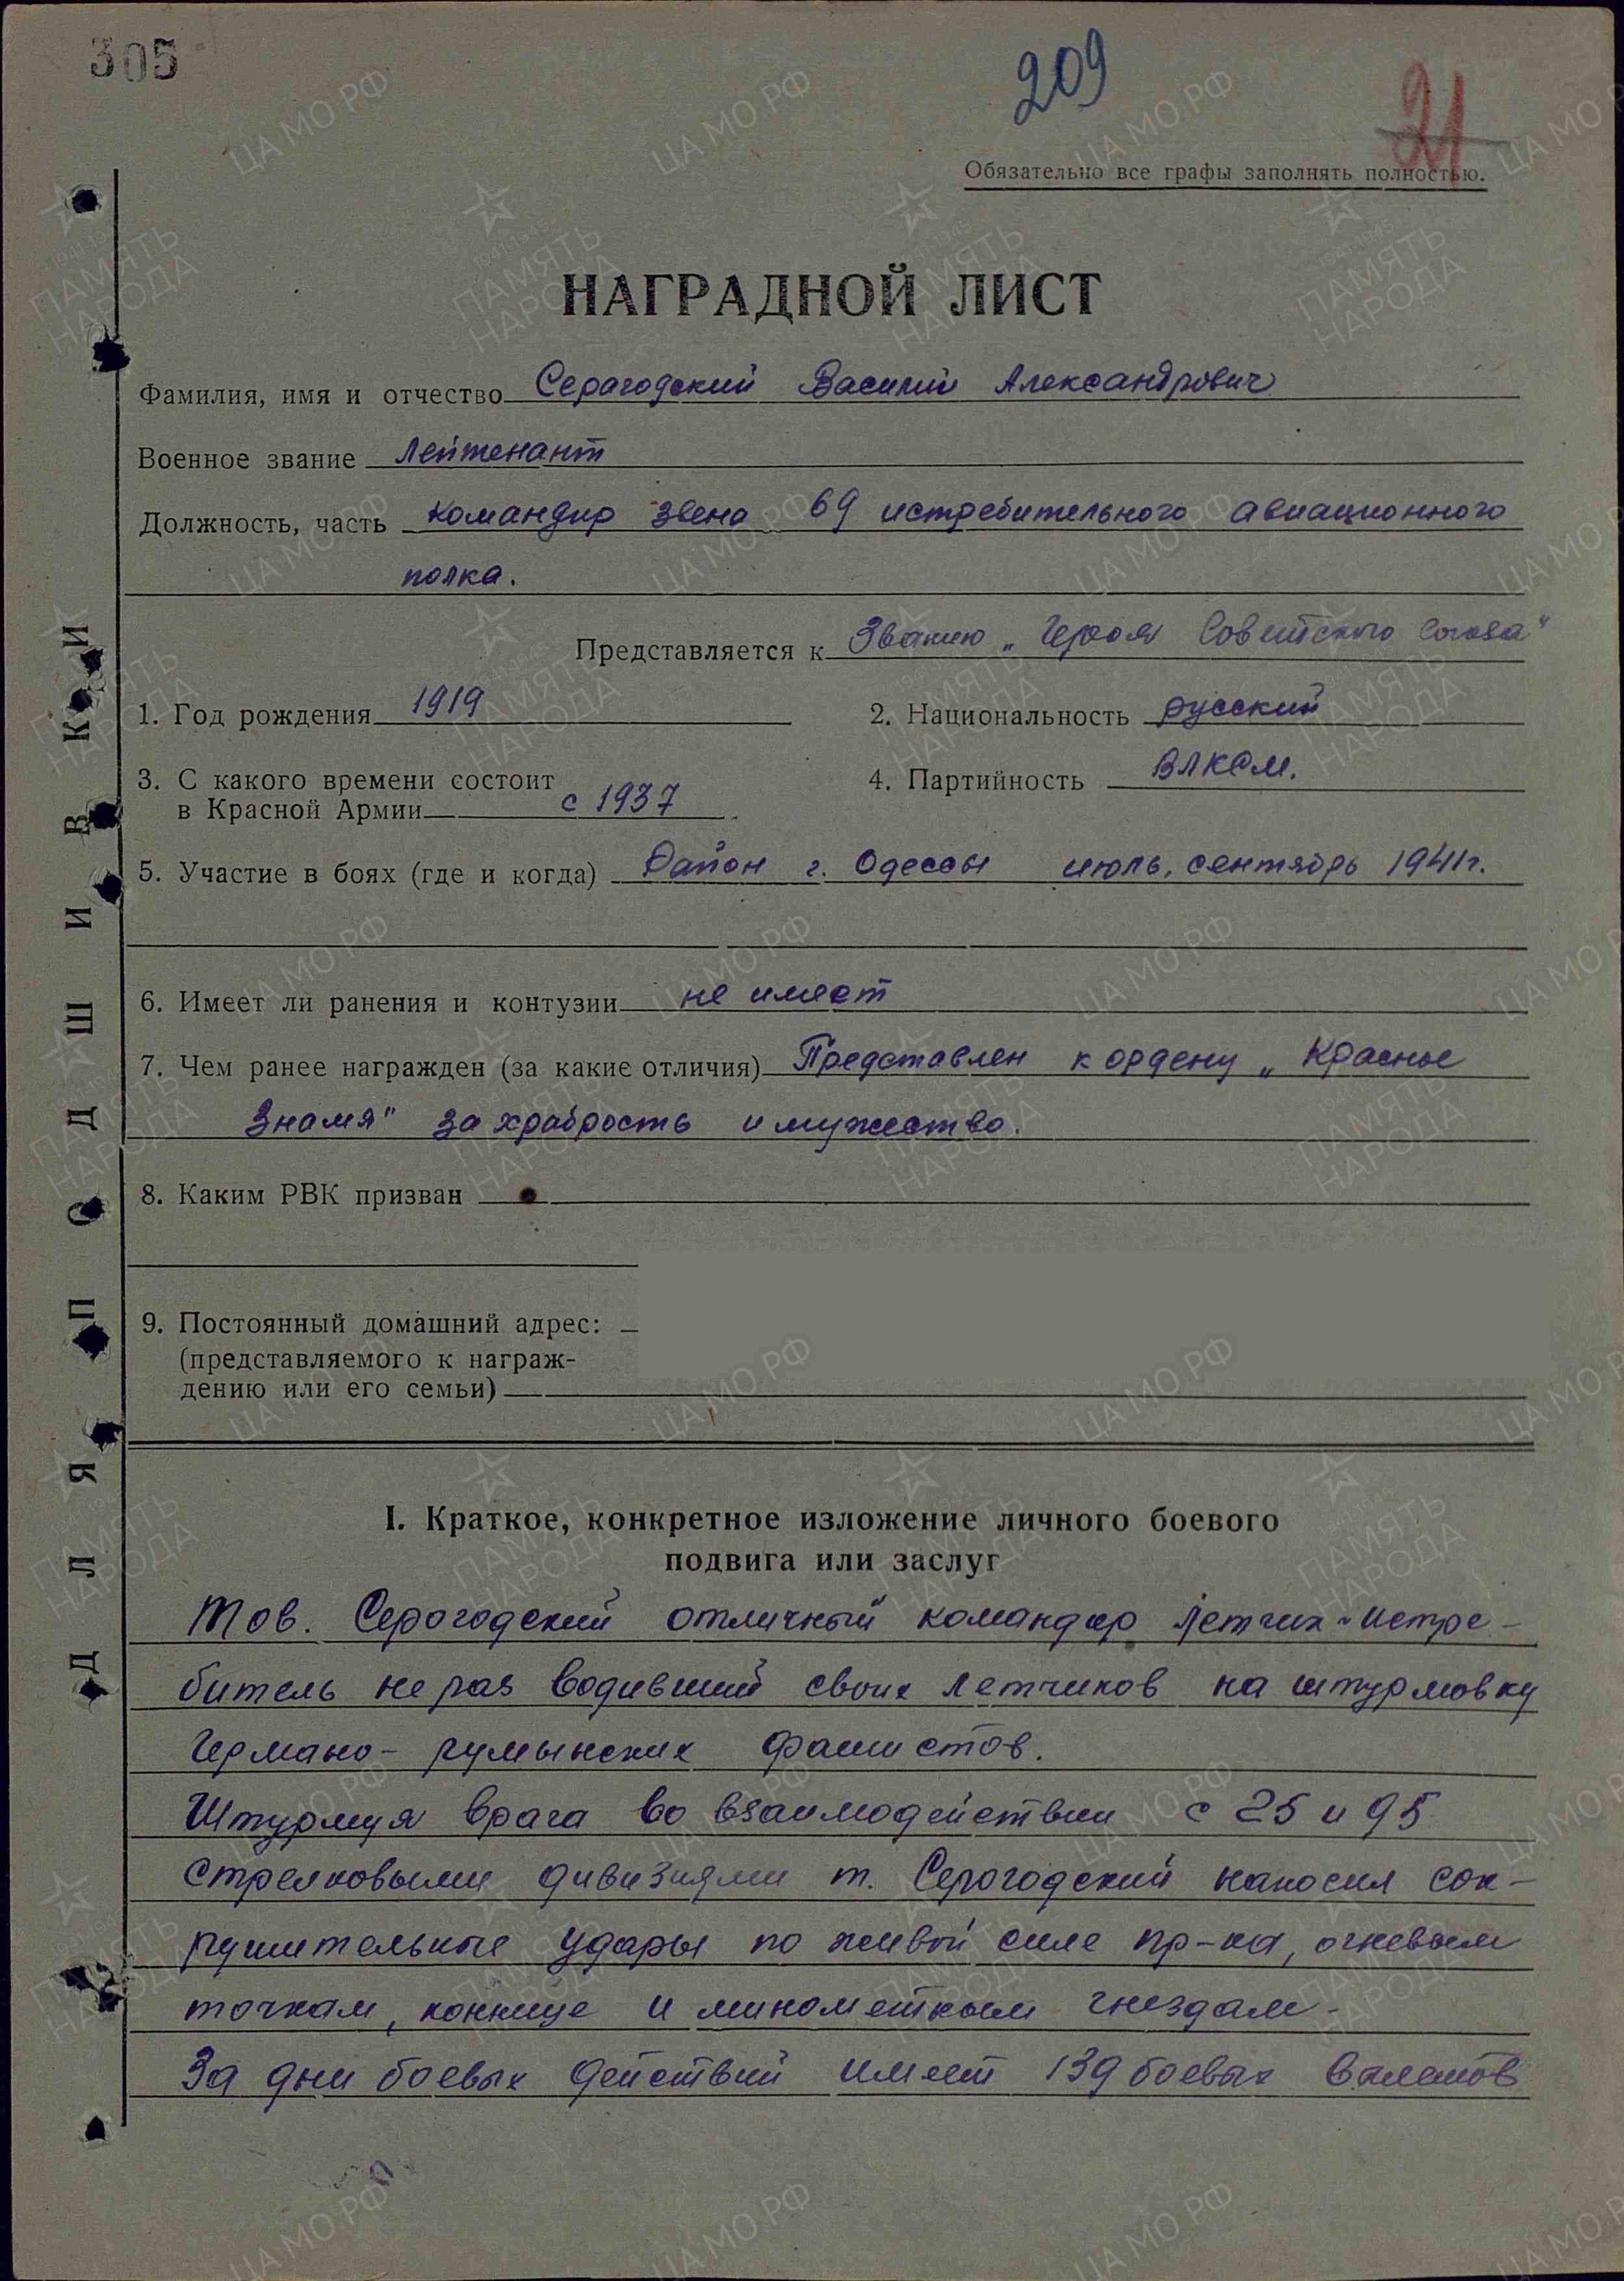 305
209
21
Обязательно все графы заполнять полностью.
НАГРАДНОЙ ЛИСТ
Фамилия, имя и отчество Серагодский Василий Александрович
Военное звание Лейтенант
Должность, часть командир звена 69 истребительного авиационного
полка.
Представляется к Званию „Героя Советского Союза"
1. Год рождения 1919
2. Национальность русский
3. С какого времени состоит
в Красной Армии с 1937
4. Партийность ВЛКСМ.
5. Участие в боях (где и когда) Район г. Одессы июль, сентябрь 1941г.
6. Имеет ли ранения и контузии не имеет
7. Чем ранее награжден (за какие отличия) Представлен к ордену „Красное
Знамя" за храбрость и мужество.
8. Каким РВК призван
9. Постоянный домашний адрес:
(представляемого к награж-
дению или его семьи)
I. Краткое, конкретное изложение личного боевого
подвига или заслуг
Тов. Серогодский отличный командир летчик-истре-
битель не раз водивший своих летчиков на штурмовку
Германо-румынских фашистов.
Штурмуя врага во взаимодействии с 25 и 95
стрелковыми дивизиями т. Серогодский наносил сок-
рушительные удары по живой силе пр-ка, огневым
точкам, коннице и минометным гнездам.
За дни боевых действий имеет 139 боевых вылетов
ДЛЯ ПОДШИВКИ
ЦА МО РФ
1941-1945
ПАМЯТЬ
НАРОДА